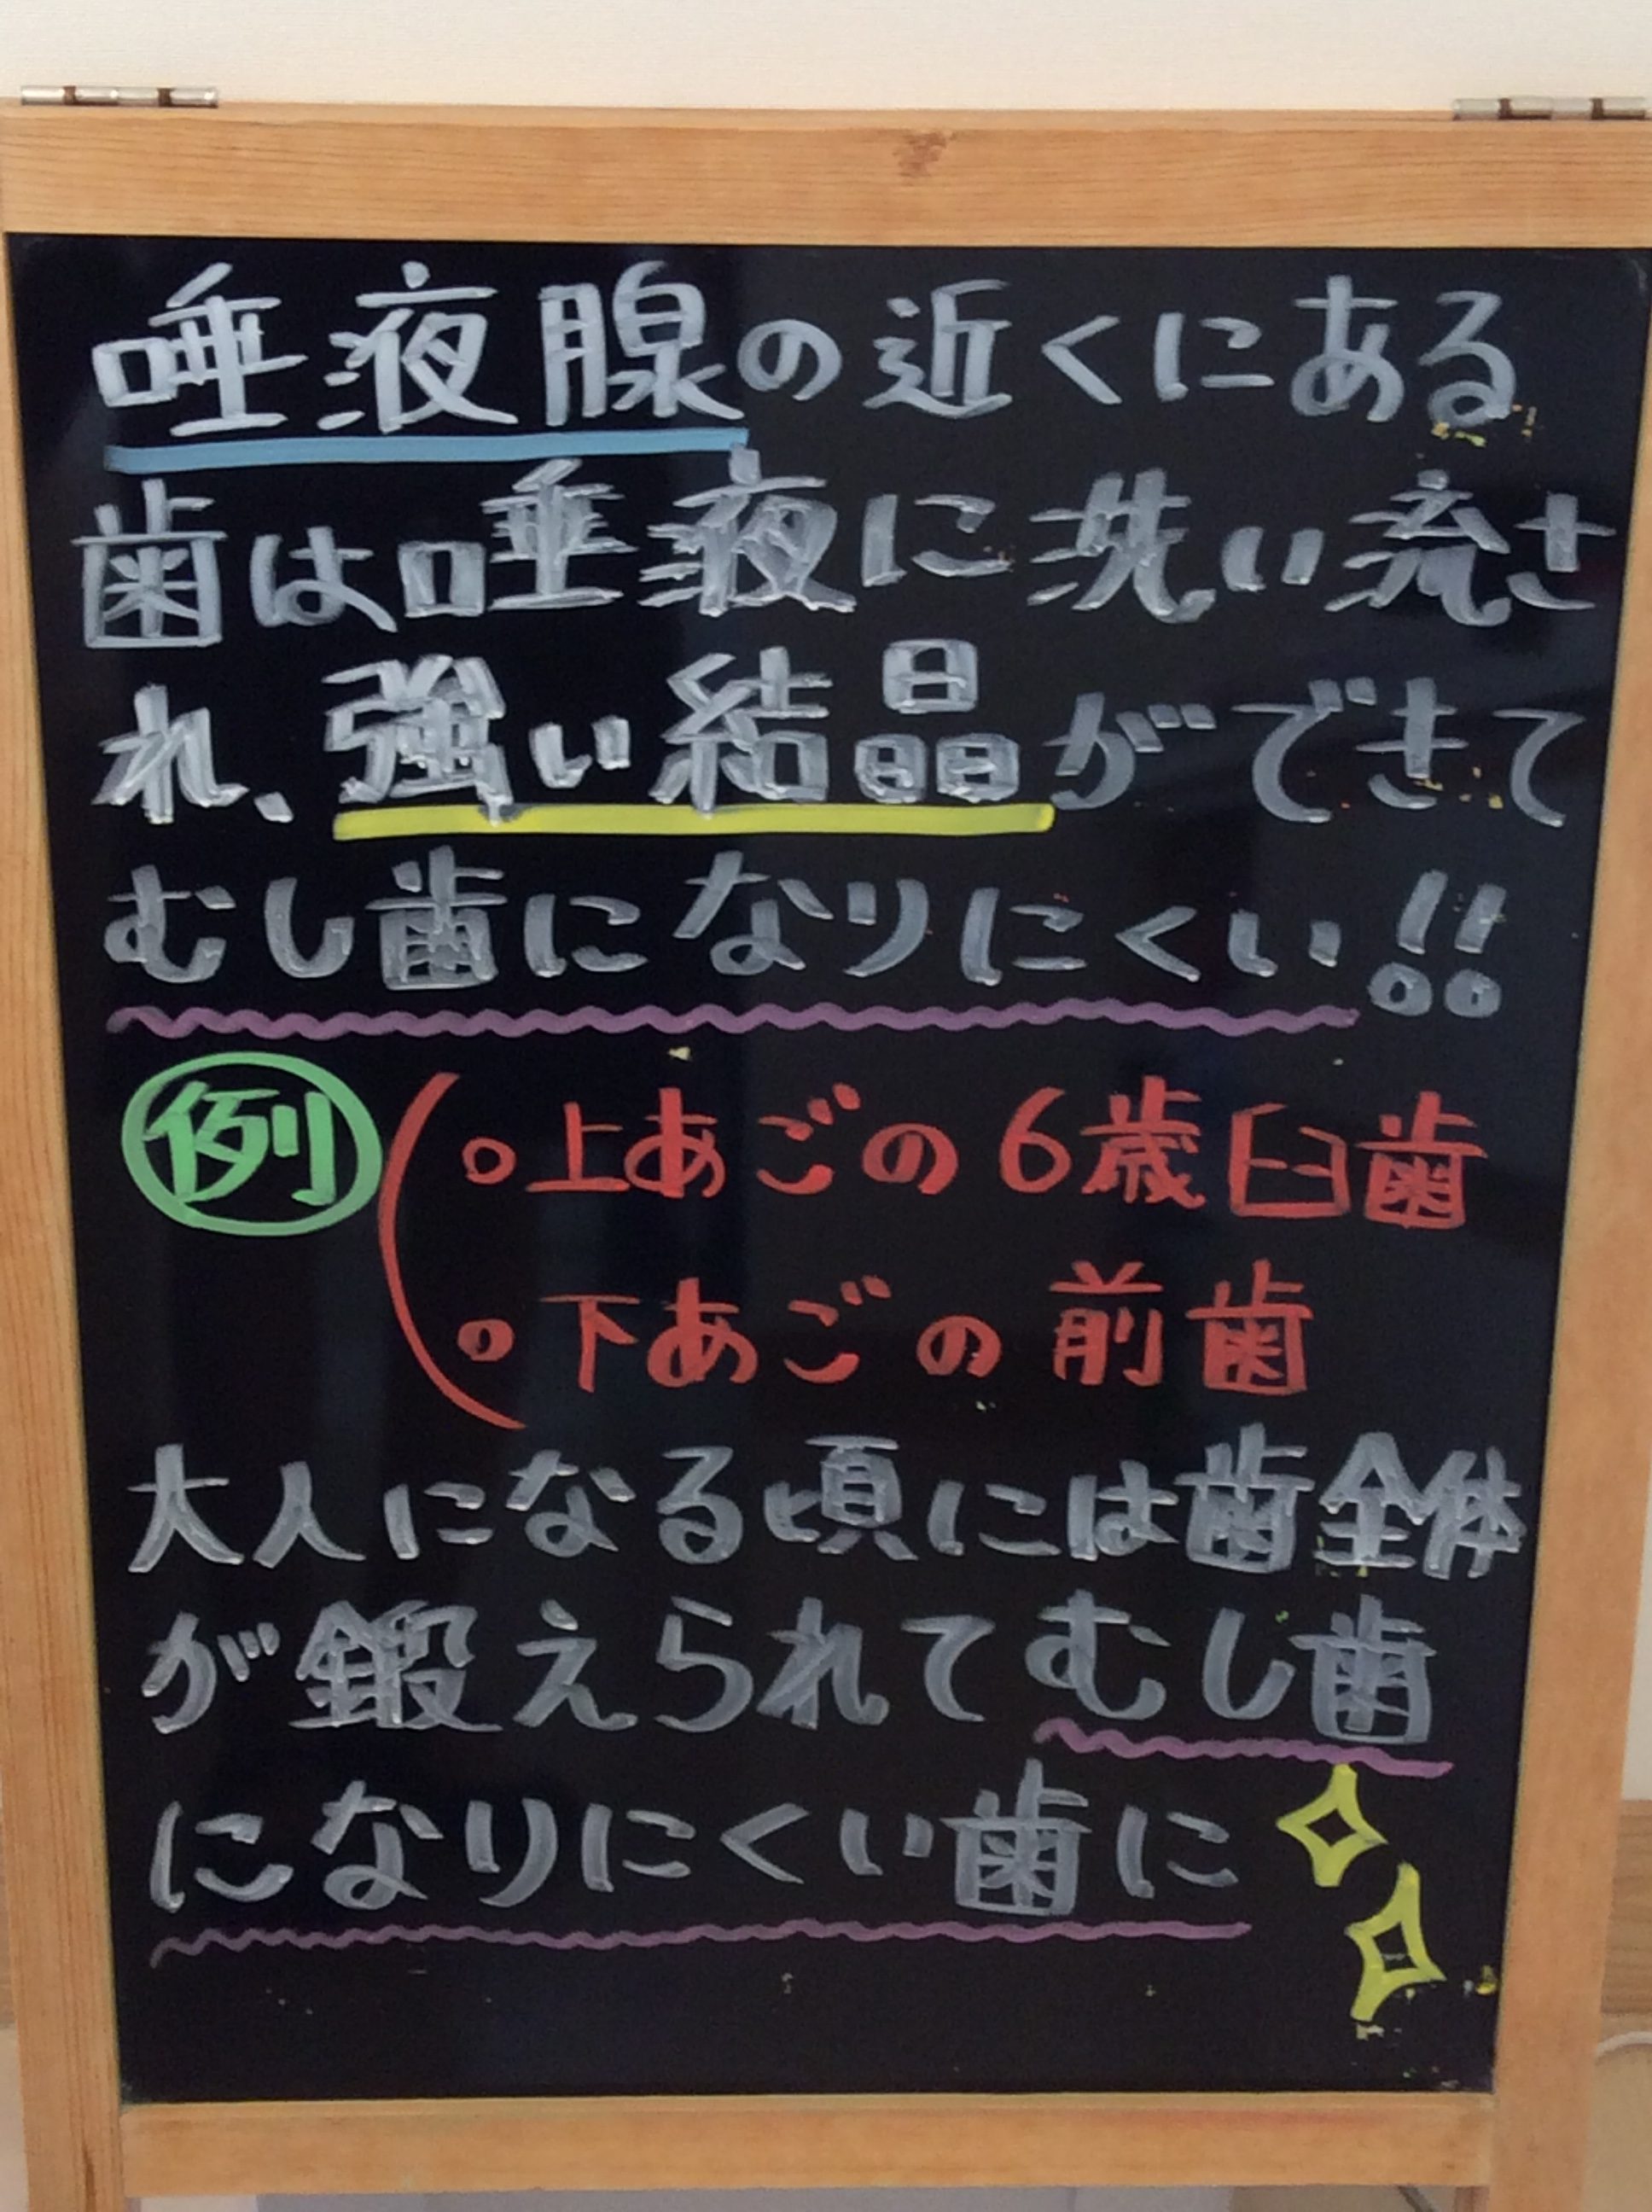 唾液腺の近くにある
歯は唾液に洗い流さ
れ、強い結晶ができて
むし歯になりにくい!!
例 ( 。上あごの6歳臼歯
。下あごの前歯
大人になる頃には歯全体
が鍛えられてむし歯
になりにくい歯に